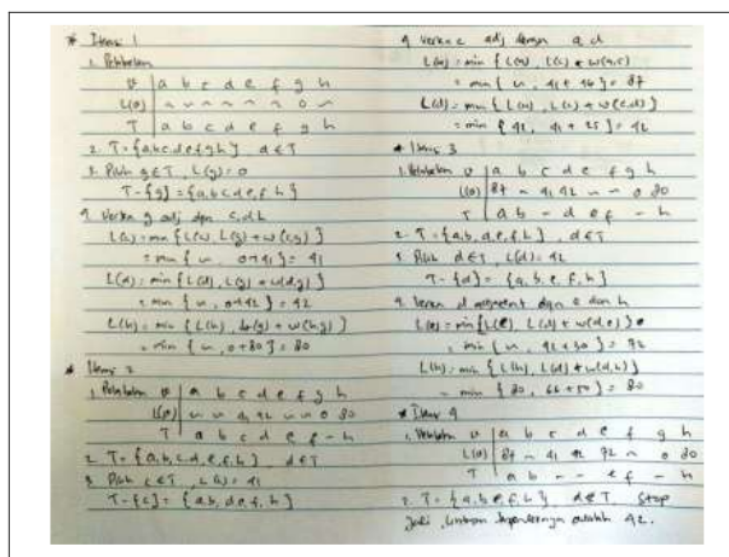 * Iterasi 1
1. Pelabelan
v | a b c d e f g h
L(v) | ~ ~ ~ ~ ~ ~ 0 ~
T | a b c d e f g h
2. T = {a b c d e f g h} d ∈ T
3. Pilih g ∈ T, L(g) = 0
T - {g} = {a, b, c, d, e, f, h}
4 Verteks g adj dgn c, d, h
L(c) = min {L(c), L(g) + w(c,g)}
= min {~, 0+41} = 41
L(d) = min {L(d), L(g) + w(d,g)}
= min {~, 0+42} = 42
L(h) = min {L(h), L(g) + w(h,g)}
= min {~, 0+80} = 80
* Iterasi 2
1. Pelabelan v | a b c d e f g h
L(v) | ~ ~ 41 42 ~ ~ 0 80
T | a b c d e f - h
2 T = {a, b, c, d, e, f, h} d ∈ T
3. Pilih c ∈ T, L(c) = 41
T - {c} = {a b, d e, f, h}
4 Verteks c adj dengan a, d
L(a) = min {L(a), L(c) + w(a,c)}
= min {~, 41 + 46} = 87
L(d) = min {L(d), L(c) + w(c,d)}
= min {42, 41 + 25} = 42
* Iterasi 3
1. Pelabelan v | a b c d e f g h
L(v) | 87 ~ 41 42 ~ ~ 0 80
T | a b - d e f - h
2. T = {a, b, d, e, f, h}, d ∈ T
3 Pilih d ∈ T, L(d) = 42
T - {d} = {a, b, e, f, h}
4. Verteks d adjacent dgn e dan h
L(e) = min {L(e), L(d) + w(d,e)}
= min {~, 42+50} = 92
L(h) = min {L(h), L(d) + w(d,h)}
= min {80, 42+50} = 80
* Iterasi 4
1. Pelabelan v | a b c d e f g h
L(v) | 87 ~ 41 42 92 ~ 0 80
T | a b - - e f - h
2. T = {a, b, e, f, h}, d ∉ T, Stop
Jadi, lintasan terpendeknya adalah 42.